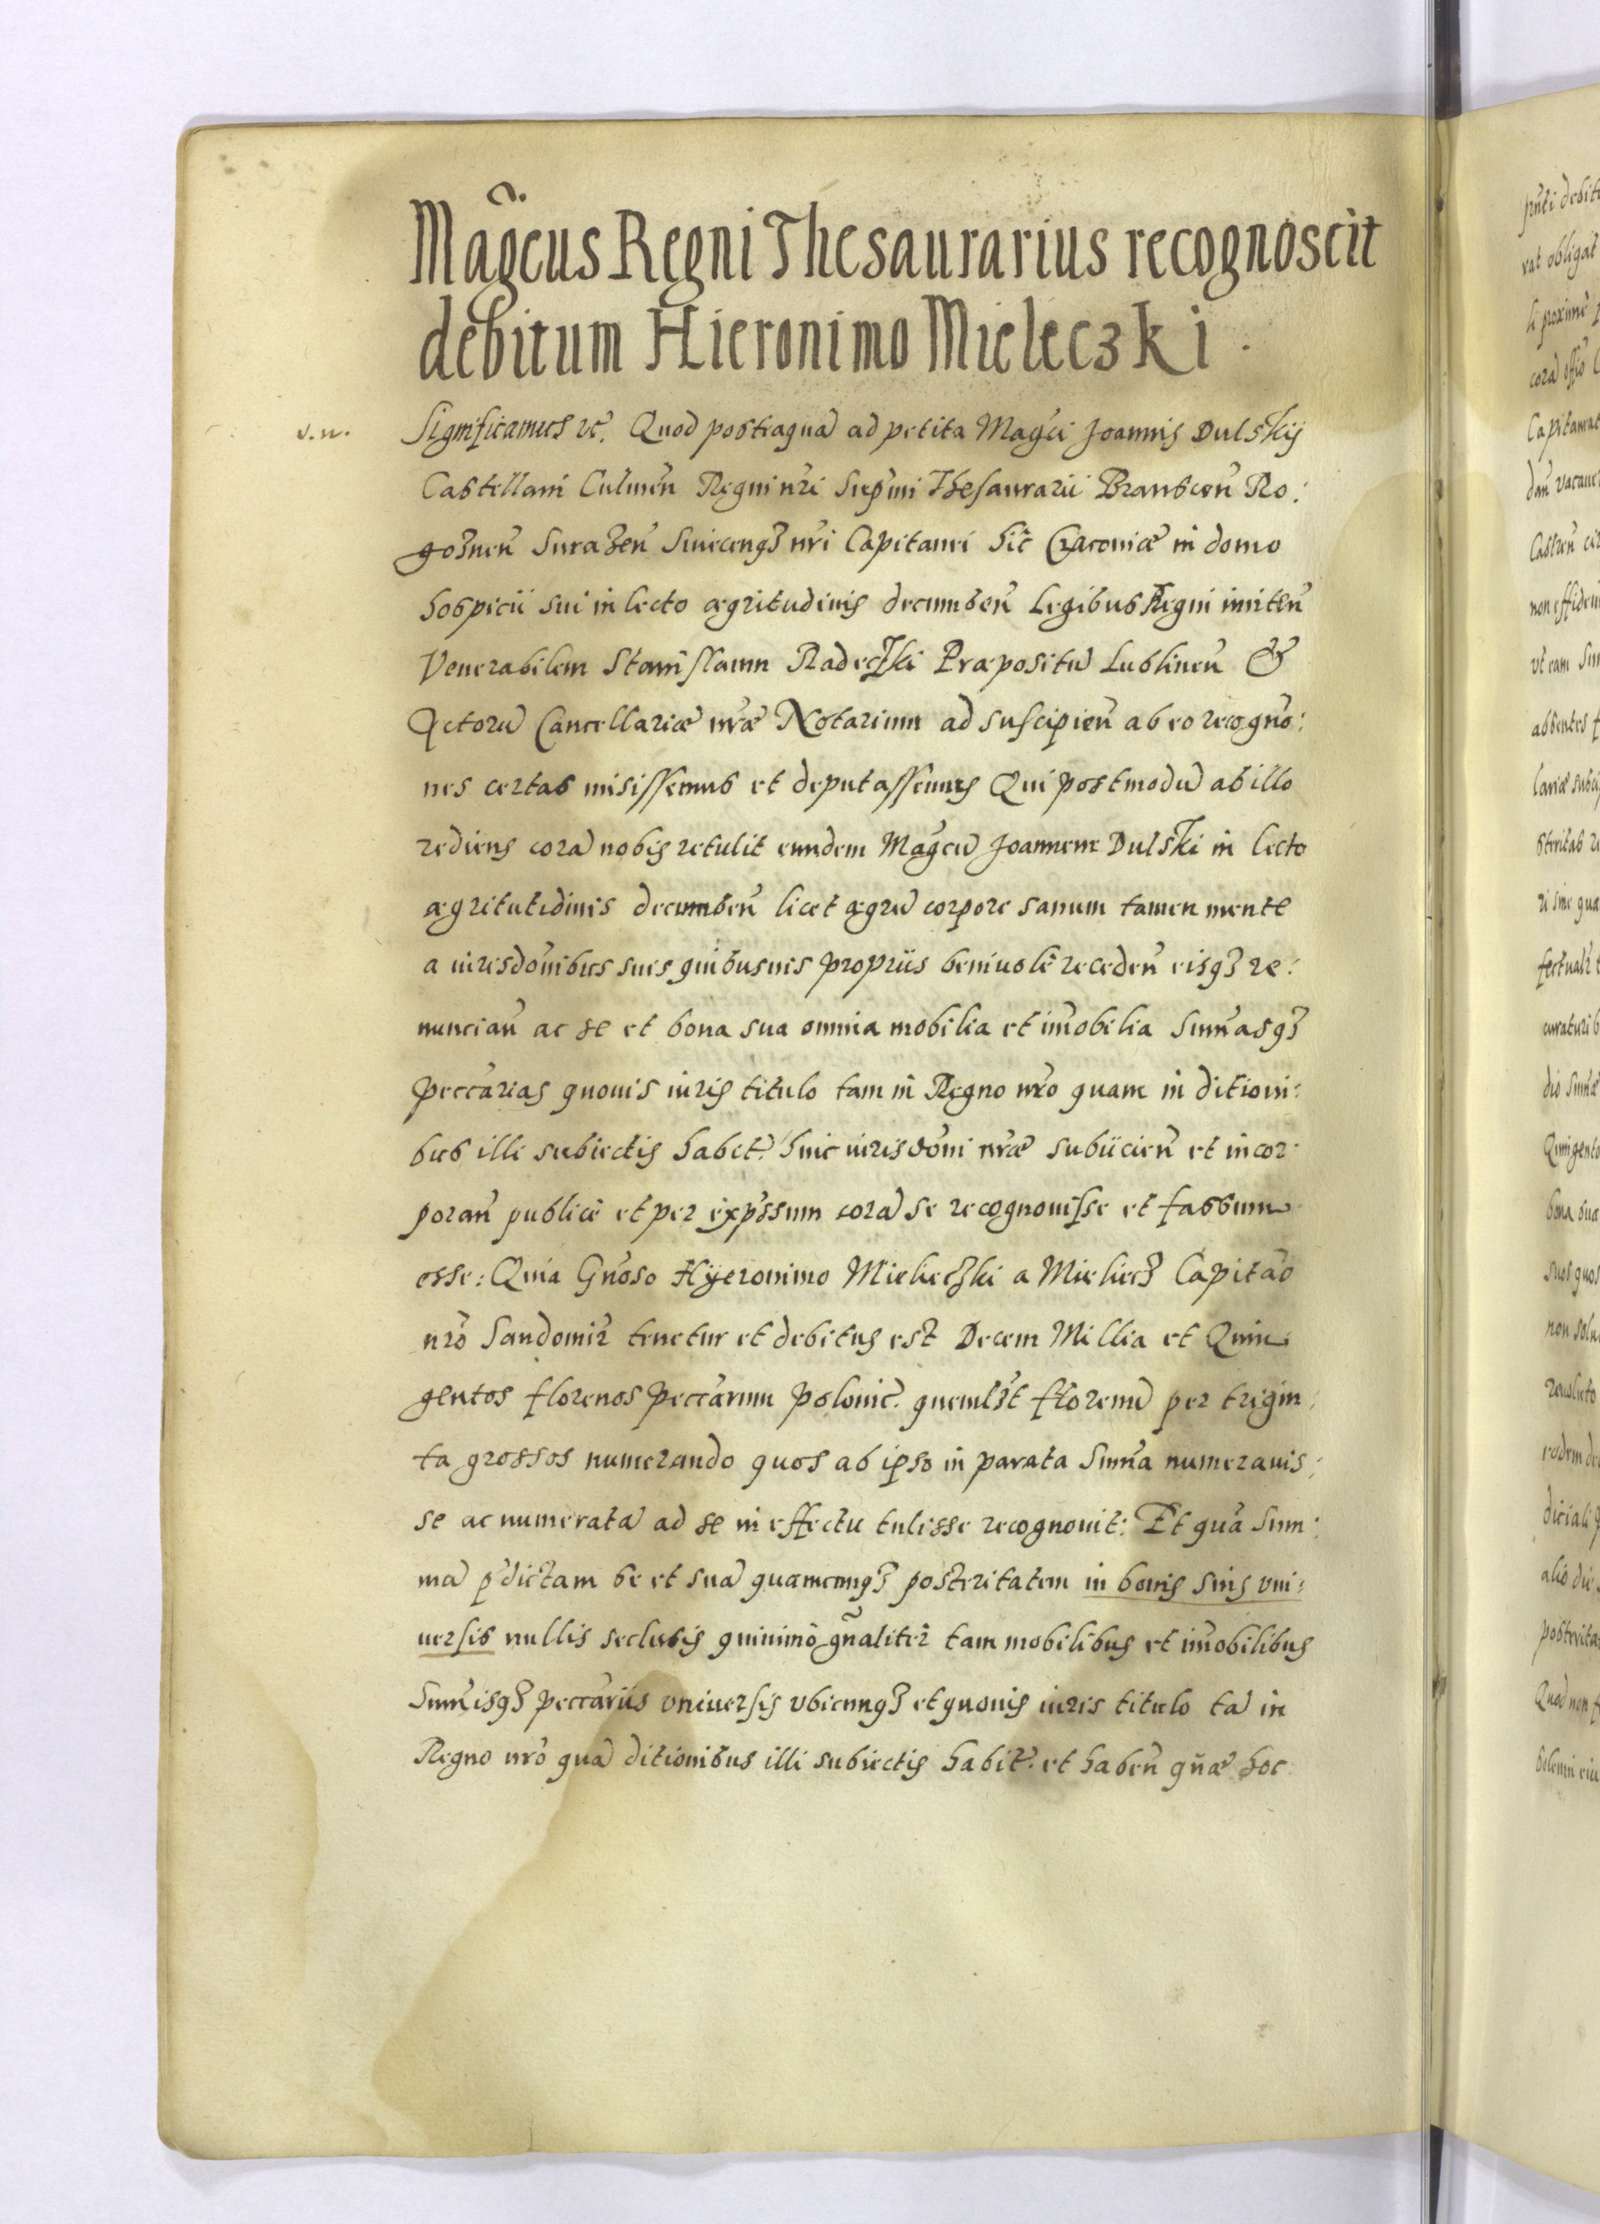 Mag̃cus Regni Thesaurarius recognoscit
debitum Hieronimo Mieleczki.
v. n.
Significamus ec̃. Quod posteaquã ad petita Mag̃ci Joannis Dulskij
Castellani Culmeñ Regni nr̃i Supr̃mi Thesaurarii Bransceñ Ro:
gozneñ Surazeñ Sviecensqꝫ nr̃i Capitanei hic Cracoviæ in domo
hospicii sui in lecto ægritudinis decumbeñ Legibus Regni initeñ
Venerabilem Stanislaum Radeczki Præpositũ Lublineñ &
Actorũ Cancellariæ nr̃æ Notarium ad suscipieñ ab eo recogno:
nes certas misissemus et deputassemus Qui postmodũ ab illo
rediens corã nobis retulit eundem Mag̃cũ Joannem Dulski in lecto
ægritutidinis decumbeñ licet ægrũ corpore sanum tamen mente
a iurisdõnibus suis quibusvis propriis benivole recedeñ eisqꝫ re:
nunciañ ac se et bona sua omnia mobilia et im̃obilia Sum̃asqꝫ
pecc̃arias quovis iuris titulo tam in Regno nr̃o quam in ditioni:
bus illi subiectis habit̃. huic iurisdõni nr̃æ subiicieñ et incor:
porañ publice et per exp̃ssum corã se recognovisse et fassum
esse: Quia Gñoso Hyeronimo Mieleczki a Mieliecz Capitão
nr̃o Sandomir̃ tenetur et debitus est Decem Millia et Quin
gentos florenos pecc̃arum polonic̃. quemlĩt florenũ per trigin:
ta grossos numerando quos ab ipso in parata Sum̃a numeravis:
se ac numeratã ad se in effectu tulisse recognovit: Et quã Sum:
mã p̃dictam se et suã quamcunqꝫ posteritatem in bonis suis uni:
versis nullis seclusis quinimo gñaliter tam mobilibus et im̃obilibus
Sum̃isqꝫ pecc̃ariis universis ubicunqꝫ et quovis iuris titulo tã in
Regno nr̃o quã ditionibus illi subiectis habit̃. et habeñ gñæ hoc